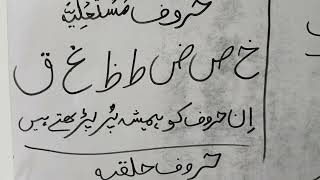 حروف مستعلیہ
خ ص ض ط ظ غ ق
اِن حروف کو ہمیشہ پُر پڑھتے ہیں
حروف حلقیہ